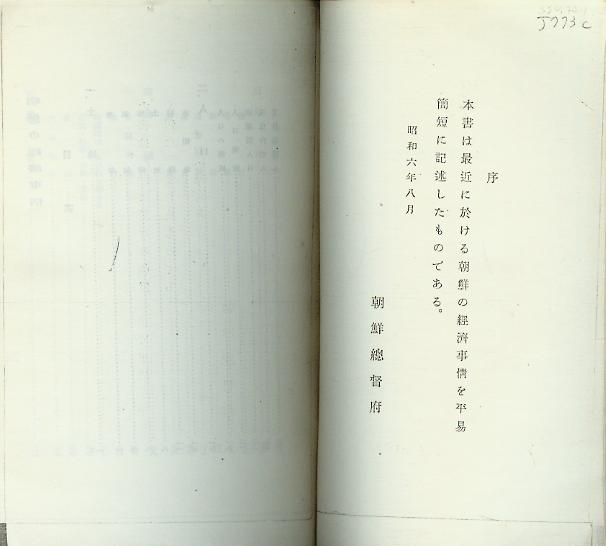 序
本書は最近に於ける朝鮮の經濟事情を平易
簡短に記述したものである。
昭和六年八月
朝鮮總督府
J773c